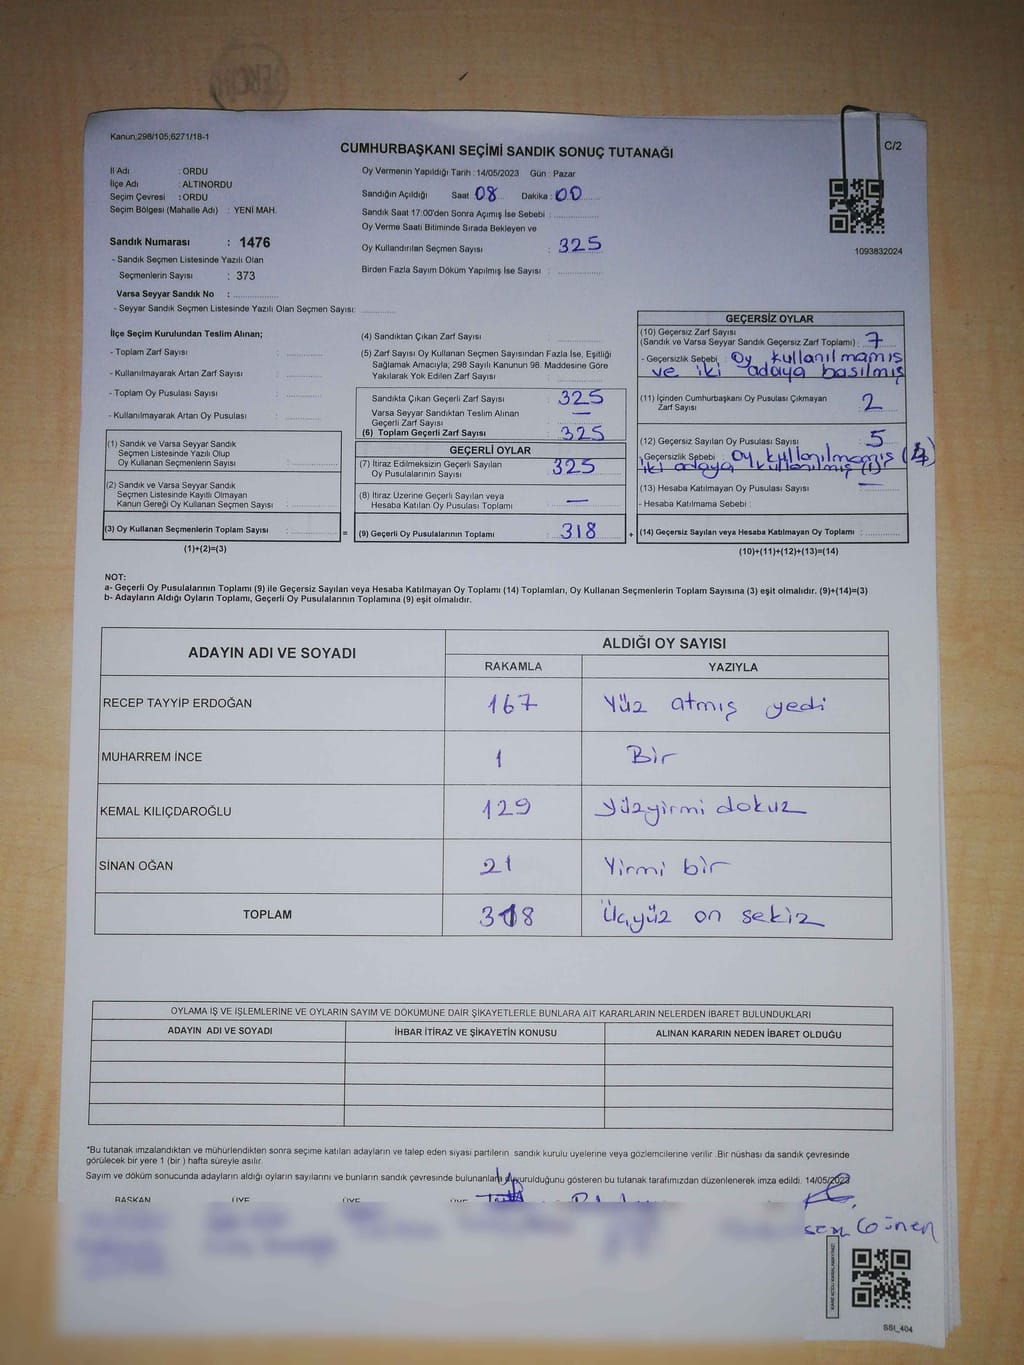 Kanun,298/105,6271/18-1
CUMHURBAŞKANI SEÇİMİ SANDIK SONUÇ TUTANAĞI
C/2
İl Adı : ORDU
İlçe Adı : ALTINORDU
Seçim Çevresi : ORDU
Seçim Bölgesi (Mahalle Adı) : YENİ MAH.
Sandık Numarası : 1476
- Sandık Seçmen Listesinde Yazılı Olan
Seçmenlerin Sayısı : 373
Varsa Seyyar Sandık No :
- Seyyar Sandık Seçmen Listesinde Yazılı Olan Seçmen Sayısı:
Oy Vermenin Yapıldığı Tarih : 14/05/2023 Gün : Pazar
Sandığın Açıldığı Saat 08 Dakika : 00
Sandık Saat 17:00'den Sonra Açımış İse Sebebi :
Oy Verme Saati Bitiminde Sırada Bekleyen ve
Oy Kullandırılan Seçmen Sayısı : 325
Birden Fazla Sayım Döküm Yapılmış İse Sayısı :
1093832024
İlçe Seçim Kurulundan Teslim Alınan;
- Toplam Zarf Sayısı :
- Kullanılmayarak Artan Zarf Sayısı :
- Toplam Oy Pusulası Sayısı :
- Kullanılmayarak Artan Oy Pusulası :
(1) Sandık ve Varsa Seyyar Sandık
Seçmen Listesinde Yazılı Olup
Oy Kullanan Seçmenlerin Sayısı :
(2) Sandık ve Varsa Seyyar Sandık
Seçmen Listesinde Kayıtlı Olmayan
Kanun Gereği Oy Kullanan Seçmen Sayısı :
(3) Oy Kullanan Seçmenlerin Toplam Sayısı : =
(1)+(2)=(3)
(4) Sandıktan Çıkan Zarf Sayısı :
(5) Zarf Sayısı Oy Kullanan Seçmen Sayısından Fazla İse, Eşitliği
Sağlamak Amacıyla; 298 Sayılı Kanunun 98. Maddesine Göre
Yakılarak Yok Edilen Zarf Sayısı :
Sandıkta Çıkan Geçerli Zarf Sayısı : 325
Varsa Seyyar Sandıktan Teslim Alınan
Geçerli Zarf Sayısı : —
(6) Toplam Geçerli Zarf Sayısı : 325
GEÇERLİ OYLAR
(7) İtiraz Edilmeksizin Geçerli Sayılan
Oy Pusulalarının Sayısı : 325
(8) İtiraz Üzerine Geçerli Sayılan veya
Hesaba Katılan Oy Pusulası Toplamı : —
(9) Geçerli Oy Pusulalarının Toplamı : 318 +
GEÇERSİZ OYLAR
(10) Geçersiz Zarf Sayısı
(Sandık ve Varsa Seyyar Sandık Geçersiz Zarf Toplamı) : 7
- Geçersizlik Sebebi : Oy kullanılmamış
ve iki adaya basılmış
(11) İçinden Cumhurbaşkanı Oy Pusulası Çıkmayan
Zarf Sayısı : 2
(12) Geçersiz Sayılan Oy Pusulası Sayısı : 5
Geçersizlik Sebebi : Oy kullanılmamış (4)
iki adaya kullanılmış (1)
(13) Hesaba Katılmayan Oy Pusulası Sayısı : —
- Hesaba Katılmama Sebebi :
(14) Geçersiz Sayılan veya Hesaba Katılmayan Oy Toplamı :
(10)+(11)+(12)+(13)=(14)
NOT:
a- Geçerli Oy Pusulalarının Toplamı (9) ile Geçersiz Sayılan veya Hesaba Katılmayan Oy Toplamı (14) Toplamları, Oy Kullanan Seçmenlerin Toplam Sayısına (3) eşit olmalıdır. (9)+(14)=(3)
b- Adayların Aldığı Oyların Toplamı, Geçerli Oy Pusulalarının Toplamına (9) eşit olmalıdır.
ADAYIN ADI VE SOYADI ALDIĞI OY SAYISI
RAKAMLA YAZIYLA
RECEP TAYYİP ERDOĞAN 167 Yüz atmış yedi
MUHARREM İNCE 1 Bir
KEMAL KILIÇDAROĞLU 129 Yüzyirmi dokuz
SİNAN OĞAN 21 Yirmi bir
TOPLAM 318 Üçyüz on sekiz
OYLAMA İŞ VE İŞLEMLERİNE VE OYLARIN SAYIM VE DÖKÜMÜNE DAİR ŞİKAYETLERLE BUNLARA AİT KARARLARIN NELERDEN İBARET BULUNDUKLARI
ADAYIN ADI VE SOYADI İHBAR İTİRAZ VE ŞİKAYETİN KONUSU ALINAN KARARIN NEDEN İBARET OLDUĞU
*Bu tutanak imzalandıktan ve mühürlendikten sonra seçime katılan adayların ve talep eden siyasi partilerin sandık kurulu üyelerine veya gözlemcilerine verilir .Bir nüshası da sandık çevresinde
görülecek bir yere 1 (bir ) hafta süreyle asılır.
Sayım ve döküm sonucunda adayların aldığı oyların sayılarını ve bunların sandık çevresinde bulunanlara duyurulduğunu gösteren bu tutanak tarafımızdan düzenlenerek imza edildi. 14/05/2023
BAŞKAN ÜYE ÜYE ÜYE
SSI_404